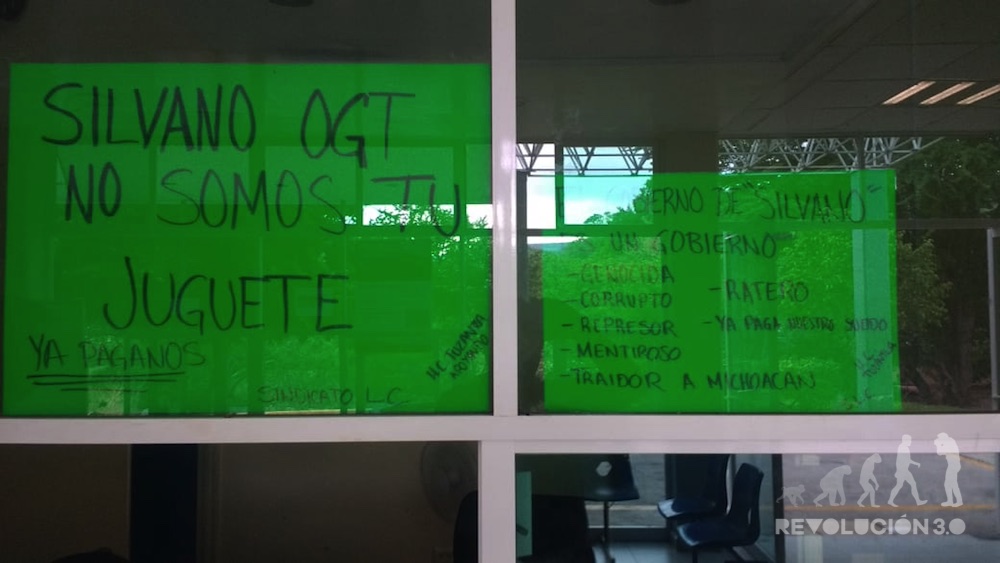 SILVANO OGT
NO SOMOS TU
JUGUETE
YA PAGANOS
SINDICATO L.C
H.C TUZANTLA
GOBIERNO DE "SILVANO"
ES UN GOBIERNO
-GENOCIDA
-CORRUPTO
-REPRESOR
-MENTIROSO
-TRAIDOR A MICHOACAN
-RATERO
-YA PAGA NUESTRO SUELDO
L.C
REVOLUCIÓN 3.0